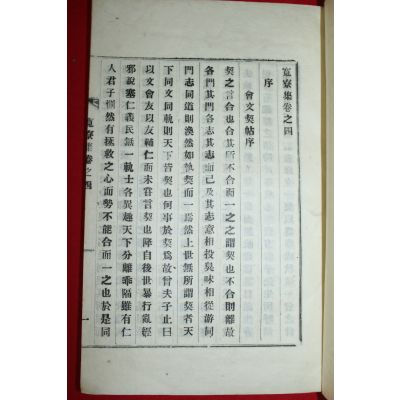 寬寮集卷之四
序
會文契帖序
契之言合也合其所不合而一之之謂契也不合則離故
各門其門各志其志而已及其志意相投臭味相從游同
門志同道則渙然如執契而一焉然上世無所謂契者天
下同文同軌則天下皆契也何事於契爲故曾夫子止曰
以文會友以友輔仁而未嘗言契也降自後世暴行亂經
邪說塞仁義民無一執士各異趣天下分離乖隔雖有仁
人君子惻然有拯救之心而勢不能合而一之也於是同
寬寮集卷之四
一